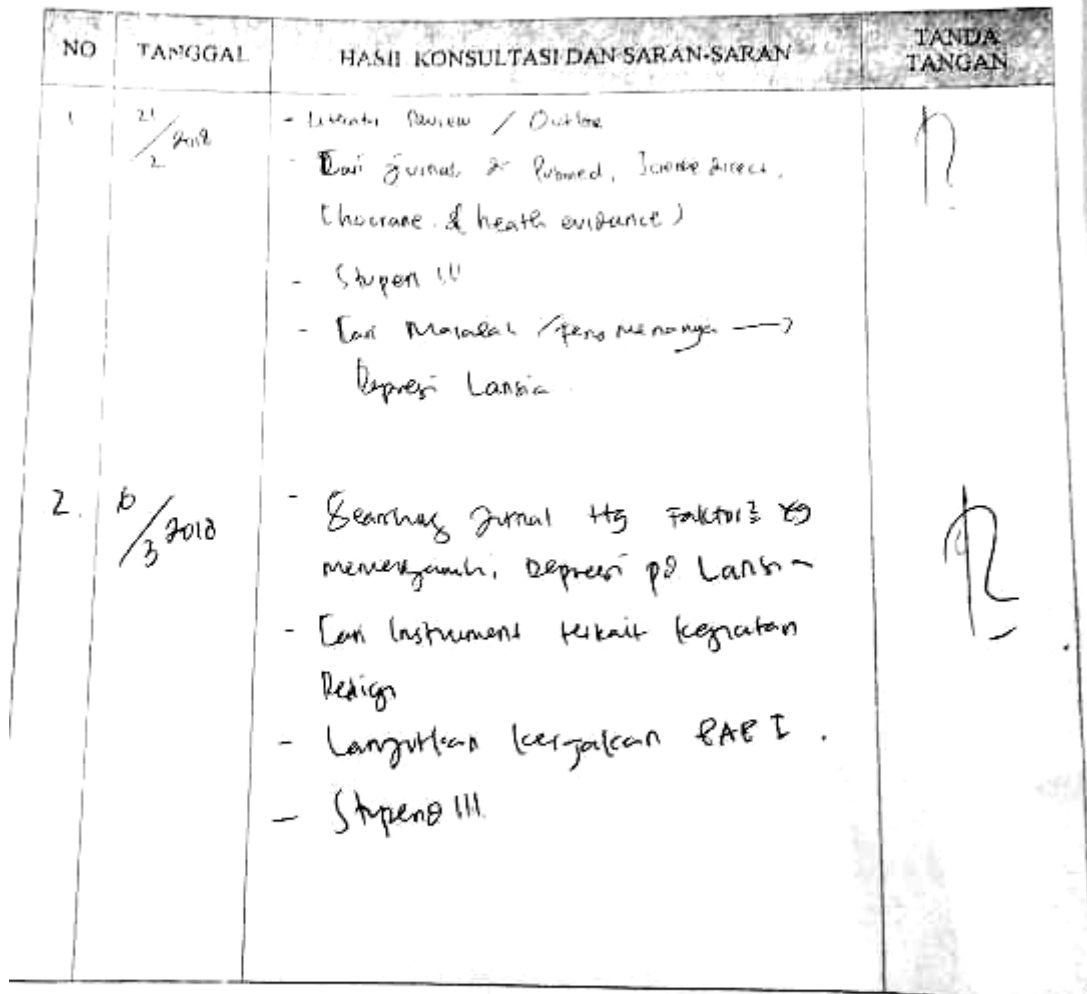 NO TANGGAL HASIL KONSULTASI DAN SARAN-SARAN TANDA TANGAN
1 21/2 2018 - Literatur Review / Outline
- Cari jurnal di Pubmed, Science direct,
Chocrane & heath evidence)
- Stupen !!!
- Cari Masalah / fenomenanya →
Depresi Lansia
2. /3 2018 - Searching Jurnal ttg Faktor2 yg
memengaruhi, Depresi pd Lansia
- Cari Instrument terkait kegiatan
- Lanjutkan kerjakan BAB I.
- Stupen !!!